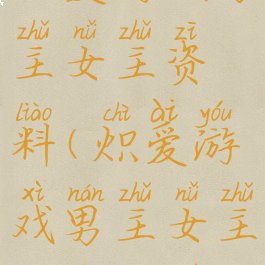 zhǔ nǚ zhǔ zī
主女主资
liào chì ài yóu
料(炽爱游
xì nán zhǔ nǚ zhǔ
戏男主女主